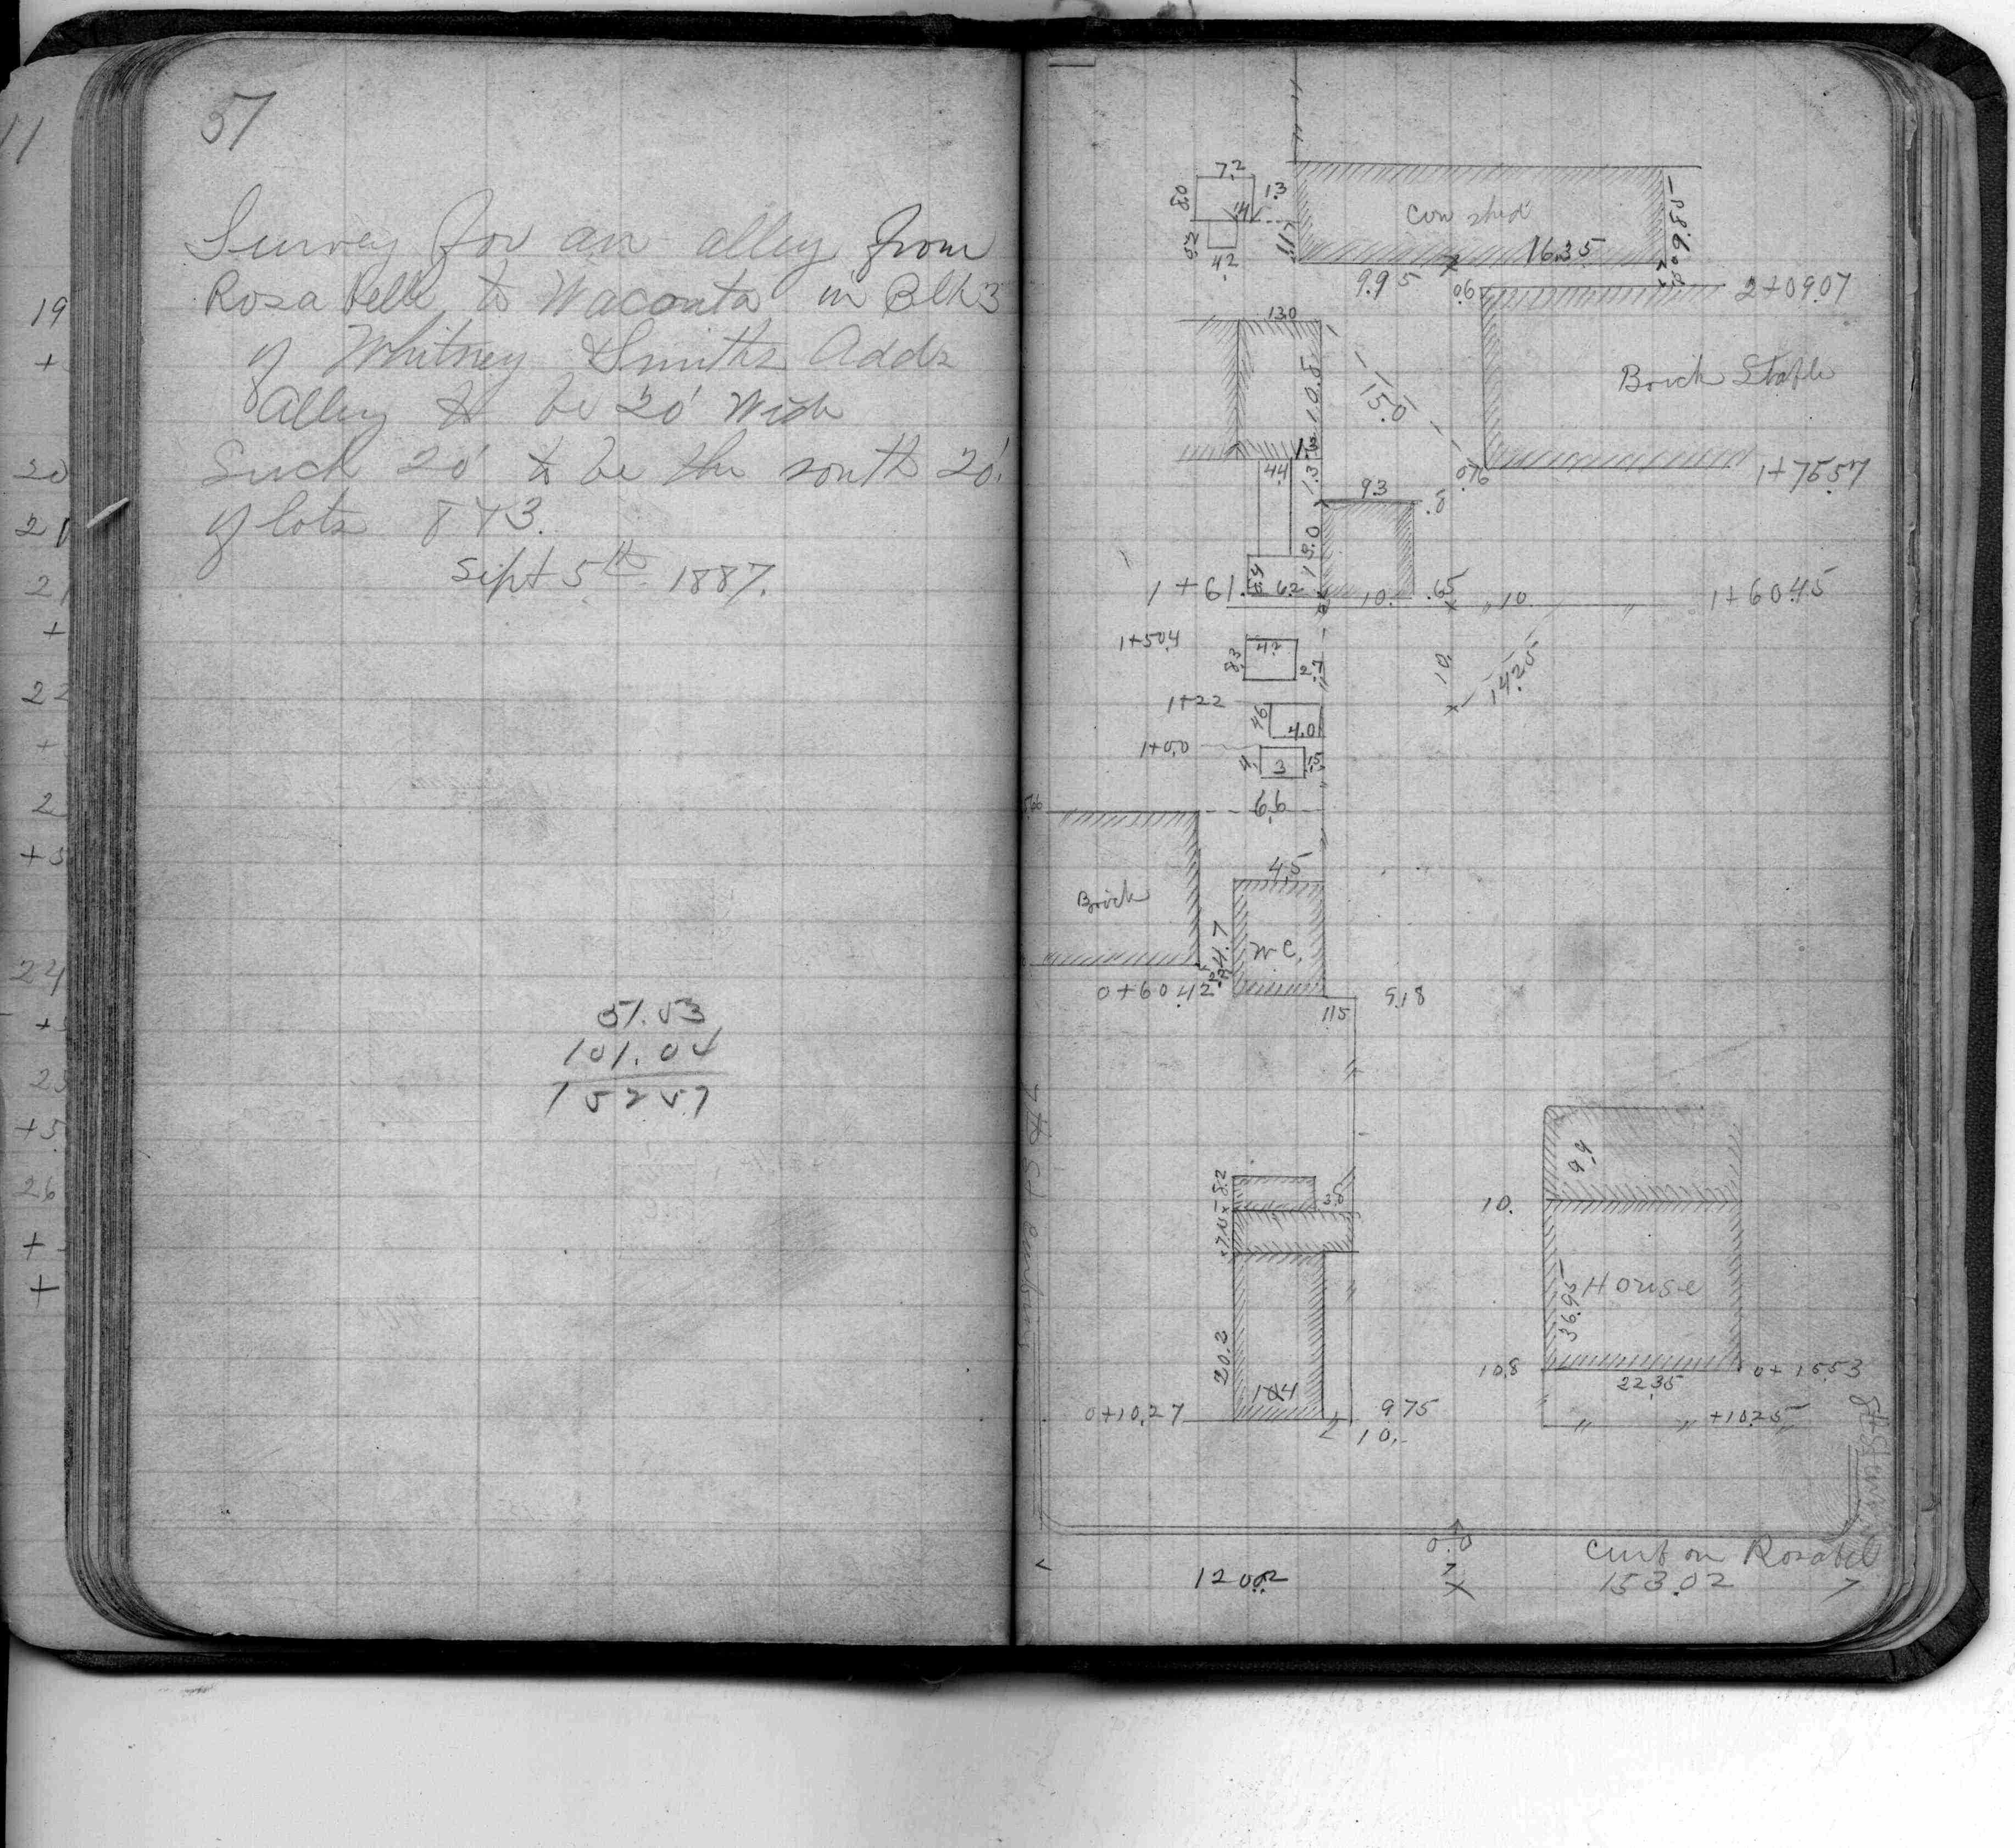 57
Survey for an alley from
Rosabelle to Wacouta in Blk 3
of Whitney & Smiths Adds
Alley to be 20' wide
Such 20' to be the south 20'
of lots 8 & 3.
Sept 5th 1887.
51.53
101.04
152.57
11
19
+
20
21
21
+
22
+
2
+3
24
23
+5
26
+
+
7.2
1.3
8.0
.4
5.2
4.2
11.7
Cow shed
16.35
9.85
9.95
0.6
2+09.07
13.0
10.5
15.0
Brick Stable
4.4
1.3
9.3
.8
.076
1+75.57
19.0
1+61.
6.2
10.
.65
10
1+60.45
1+50.4
4.2
8.3
2.7
10.
14.25
1+22
4.6
4.0
1+0.0
4.
3
1.5
6.6
4.5
Brick
W C.
4.7
0+60.42
9.18
1.15
7th St
8.2
3.8
7.5
9.4
10.
House
36.95
20.3
10.4
10.8
22.35
0+15.53
0+10.27
9.75
10.
+10.25
8th Street
0.0
7
Curb on Rosabel
120.02
153.02